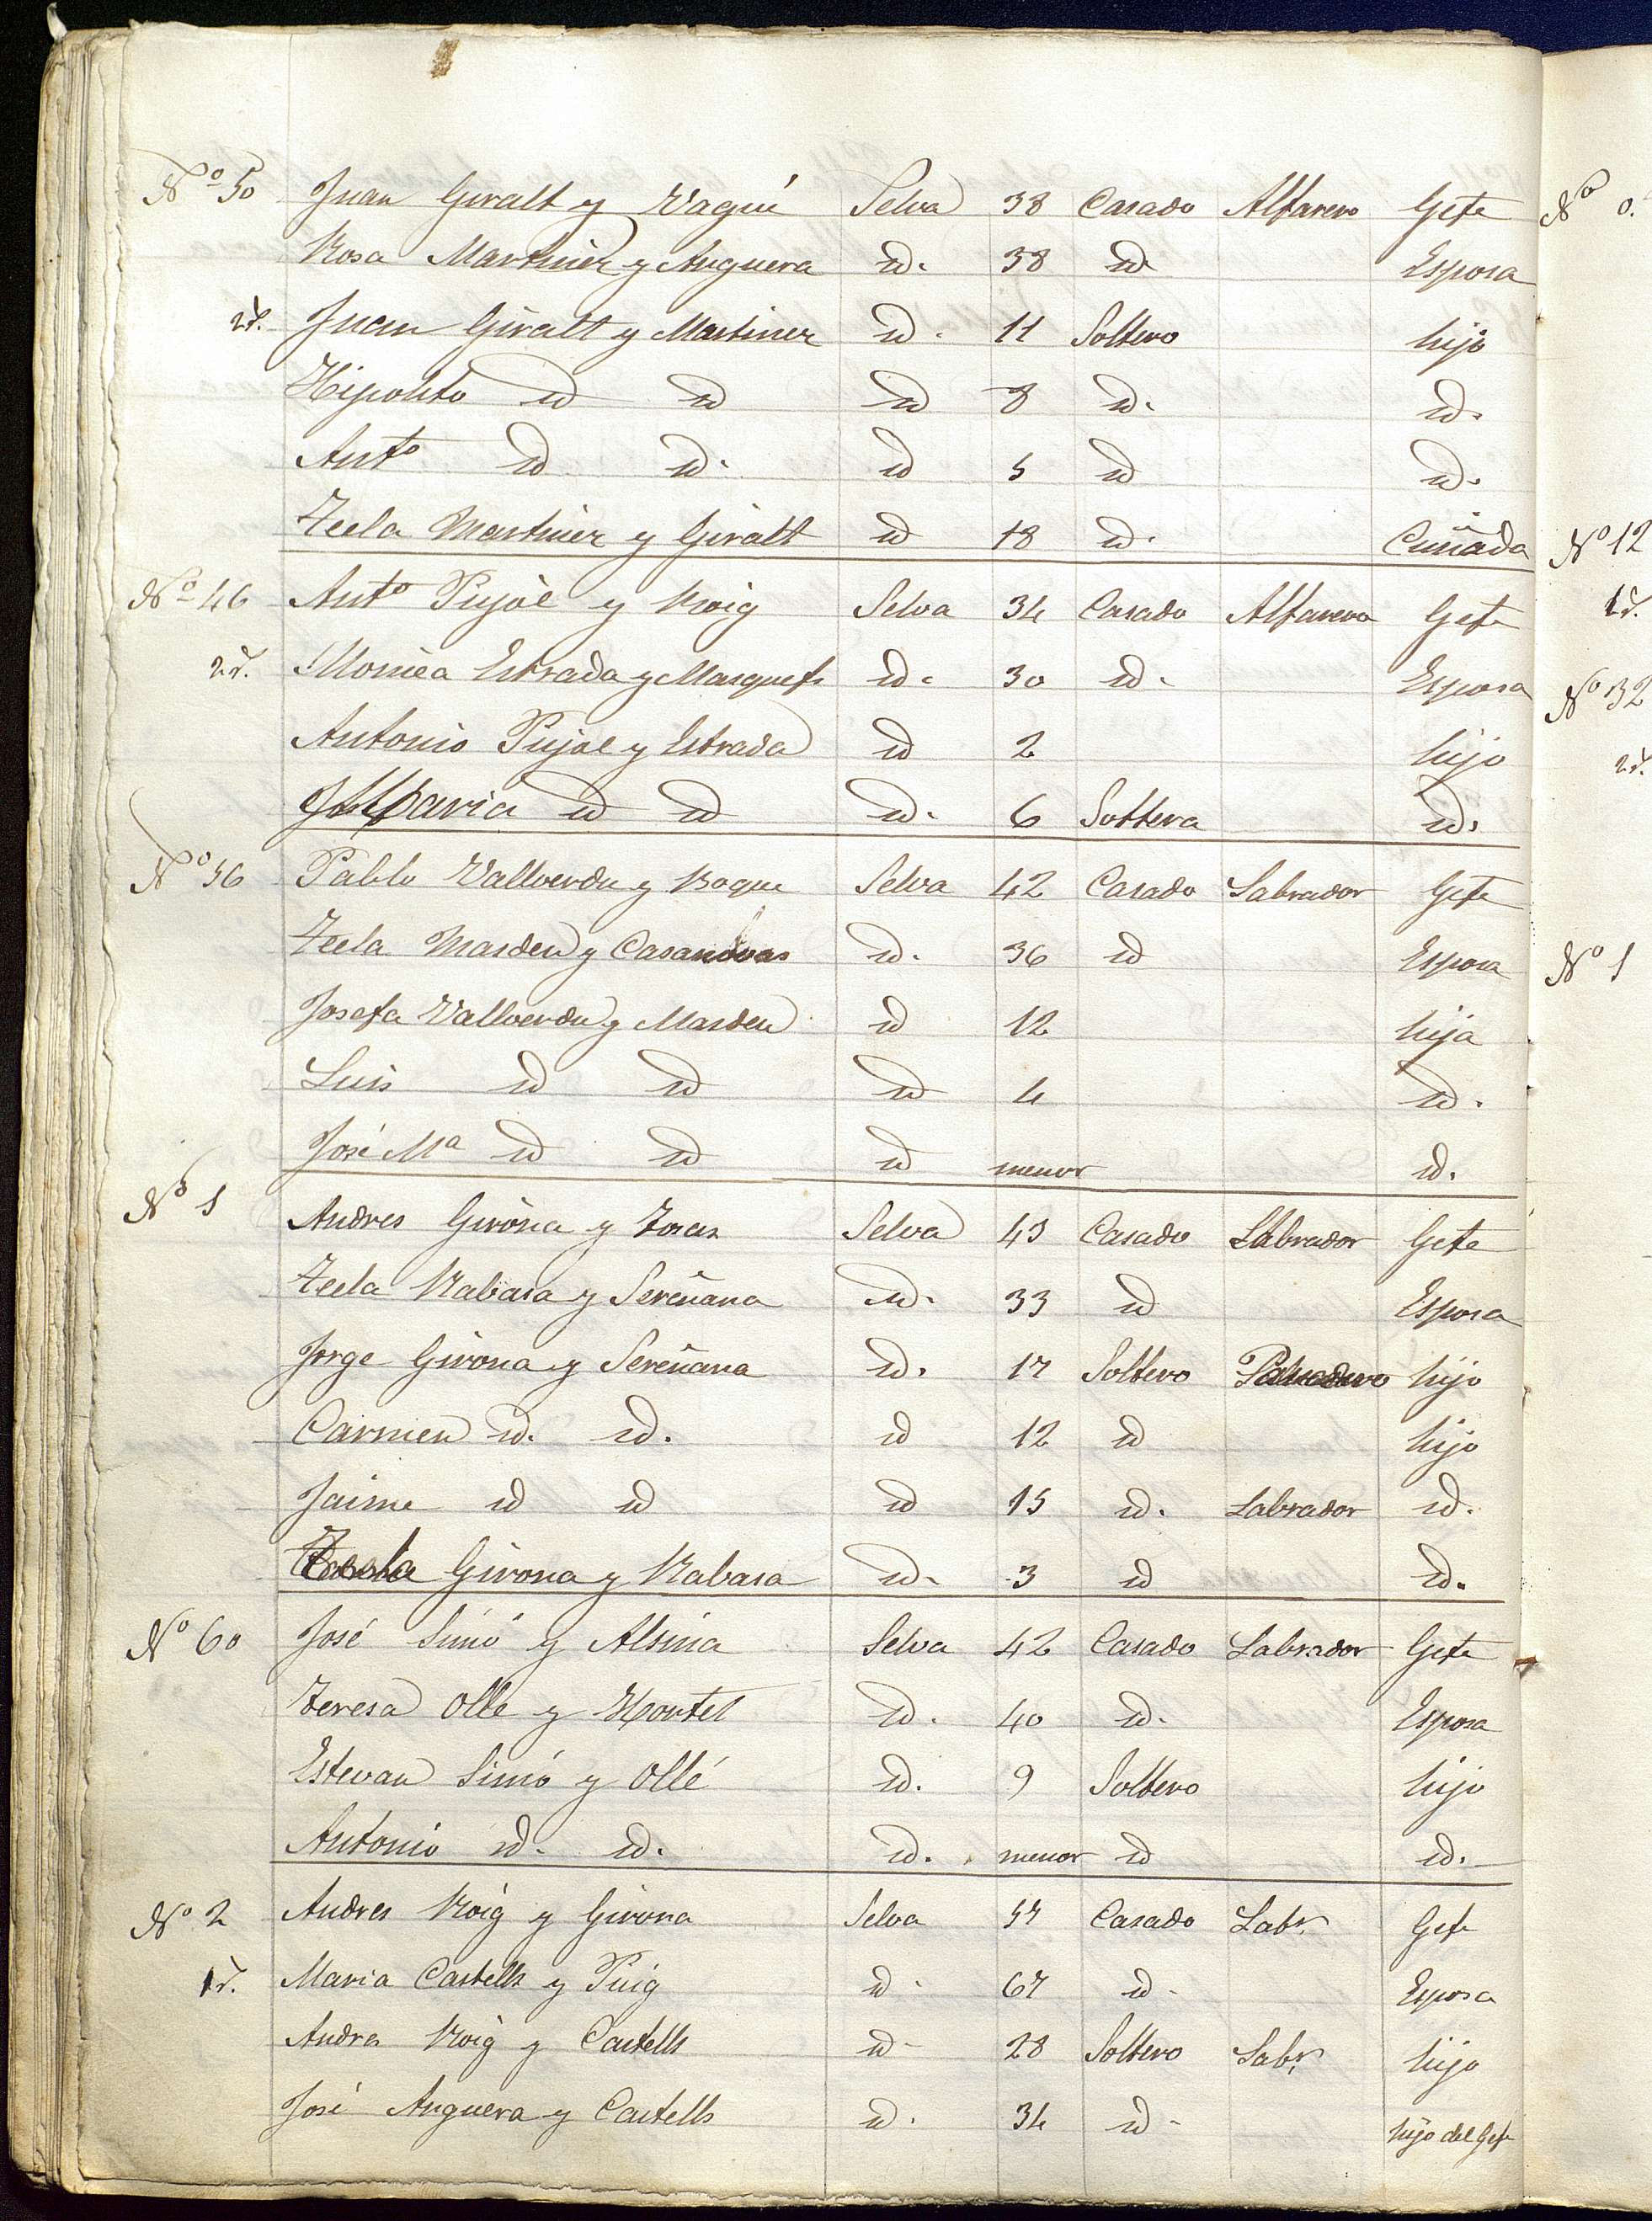 Nº 50 Juan Giralt y Vagué Selva 38 Casado Alfarero Gefe
Rosa Martinez y Anguera id. 38 id Esposa
2º. Juan Giralt y Martinez id. 11 Soltero hijo
Hipolito id id id 8 id. id.
Antº id id. id 5 id id.
Tecla Martinez y Giralt id 18 id. Cuñada
Nº 46 Antº Pujol y Roig Selva 34 Casado Alfarero Gefe
2º. Monica Estrada y Masqués id. 30 id. Esposa
Antonio Pujol y Estrada id 2 hijo
Maria id id id. 6 Soltera id.
Nº 56 Pablo Vallverdu y Roque Selva 42 Casado Labrador Gefe
Tecla Masdeu y Casanovas id. 36 id Esposa
Josefa Vallverdu y Masdeu id 12 hija
Luis id id id 4 id.
José Mª id id id menor id.
Nº 1 Andres Girona y Selva 43 Casado Labrador Gefe
Tecla Rabasa y Sereñana id. 33 id Esposa
Jorge Girona y Sereñana id. 17 Soltero Panadero hijo
Carmen id. id. id 12 id hijo
Jaime id id id 15 id. Labrador id.
Tecla Girona y Rabasa id. 3 id id.
Nº 60 José Simó y Alsina Selva 42 Casado Labrador Gefe
Teresa Olle y id. 40 id. Esposa
Estevan Simó y Ollé id. 9 Soltero hijo
Antonio id. id. id. menor id id.
Nº 2 Andres Roig y Girona Selva 57 Casado Labr. Gefe
1º. Maria Castells y Puig id. 67 id. Esposa
Andres Roig y Castells id 28 Soltero Labr. hijo
José Anguera y Castells id. 34 id. hijo del Gefe
Nº
Nº 12
1º.
Nº 32
2º.
Nº 1